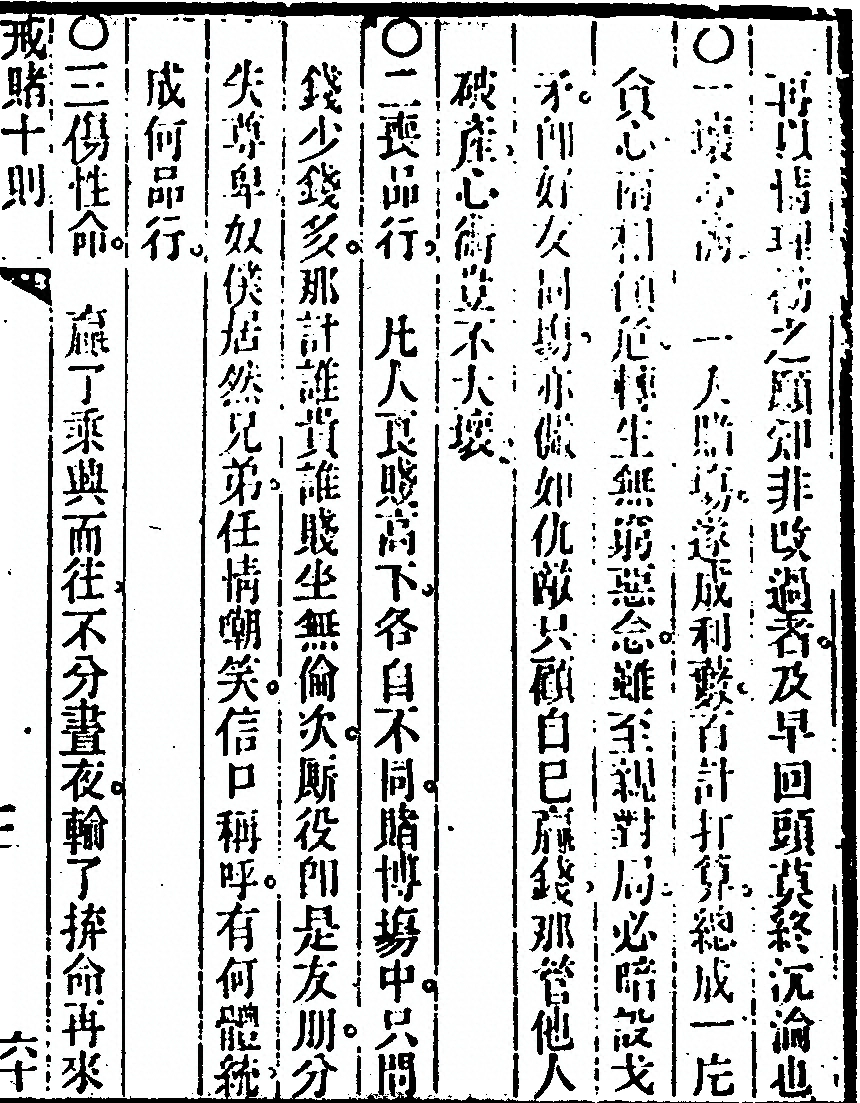 再以情理勸之願知非改過者及早回頭莫終沉淪也
〇一壞心術　一入賭塲遂成利藪百計打算總成一片
貪心兩相傾危轉生無窮惡念雖至親對局必暗設戈
矛即好友同塲亦儼如仇敵只顧自己贏錢那管他人
破產心術豈不大壞
〇二喪品行　凡人良賤高下各自不同賭博塲中只問
錢少錢多那計誰貴誰賤坐無倫次厮役即是友朋分
失尊卑奴僕居然兄弟任情嘲笑信口稱呼有何體統
成何品行
〇三傷性命　贏了乘興而往不分晝夜輸了拚命再來
戒賭十則　三　六十